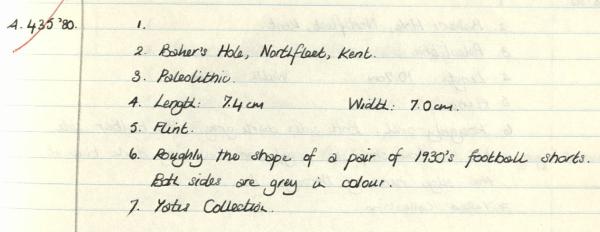 A.435'80. 1.
2. Baker's Hole, Northfleet, Kent.
3. Paleolithic.
4. Length: 7.4cm Width: 7.0cm.
5. Flint.
6. Roughly the shape of a pair of 1930's football shorts.
Both sides are grey in colour.
7. Yates Collection.